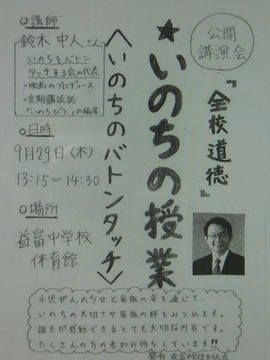 公開
講演会
『全校道徳』
★いのちの授業
〈いのちのバトンタッチ〉
○講師
鈴木中人さん
いのちをバトン
タッチする会の代表
・映画のプロデュース
・定期購読誌
「いのちびと」の編集
○日時
9月29日(木)
13:15～14:30
○場所
益富中学校
体育館
小児がんの少女と家族の姿を通じて、
いのちの大切さ家族の絆をみつめます。
誰もが感動できるとても大切な内容です!!
たくさんの方の参加お待ちしています!